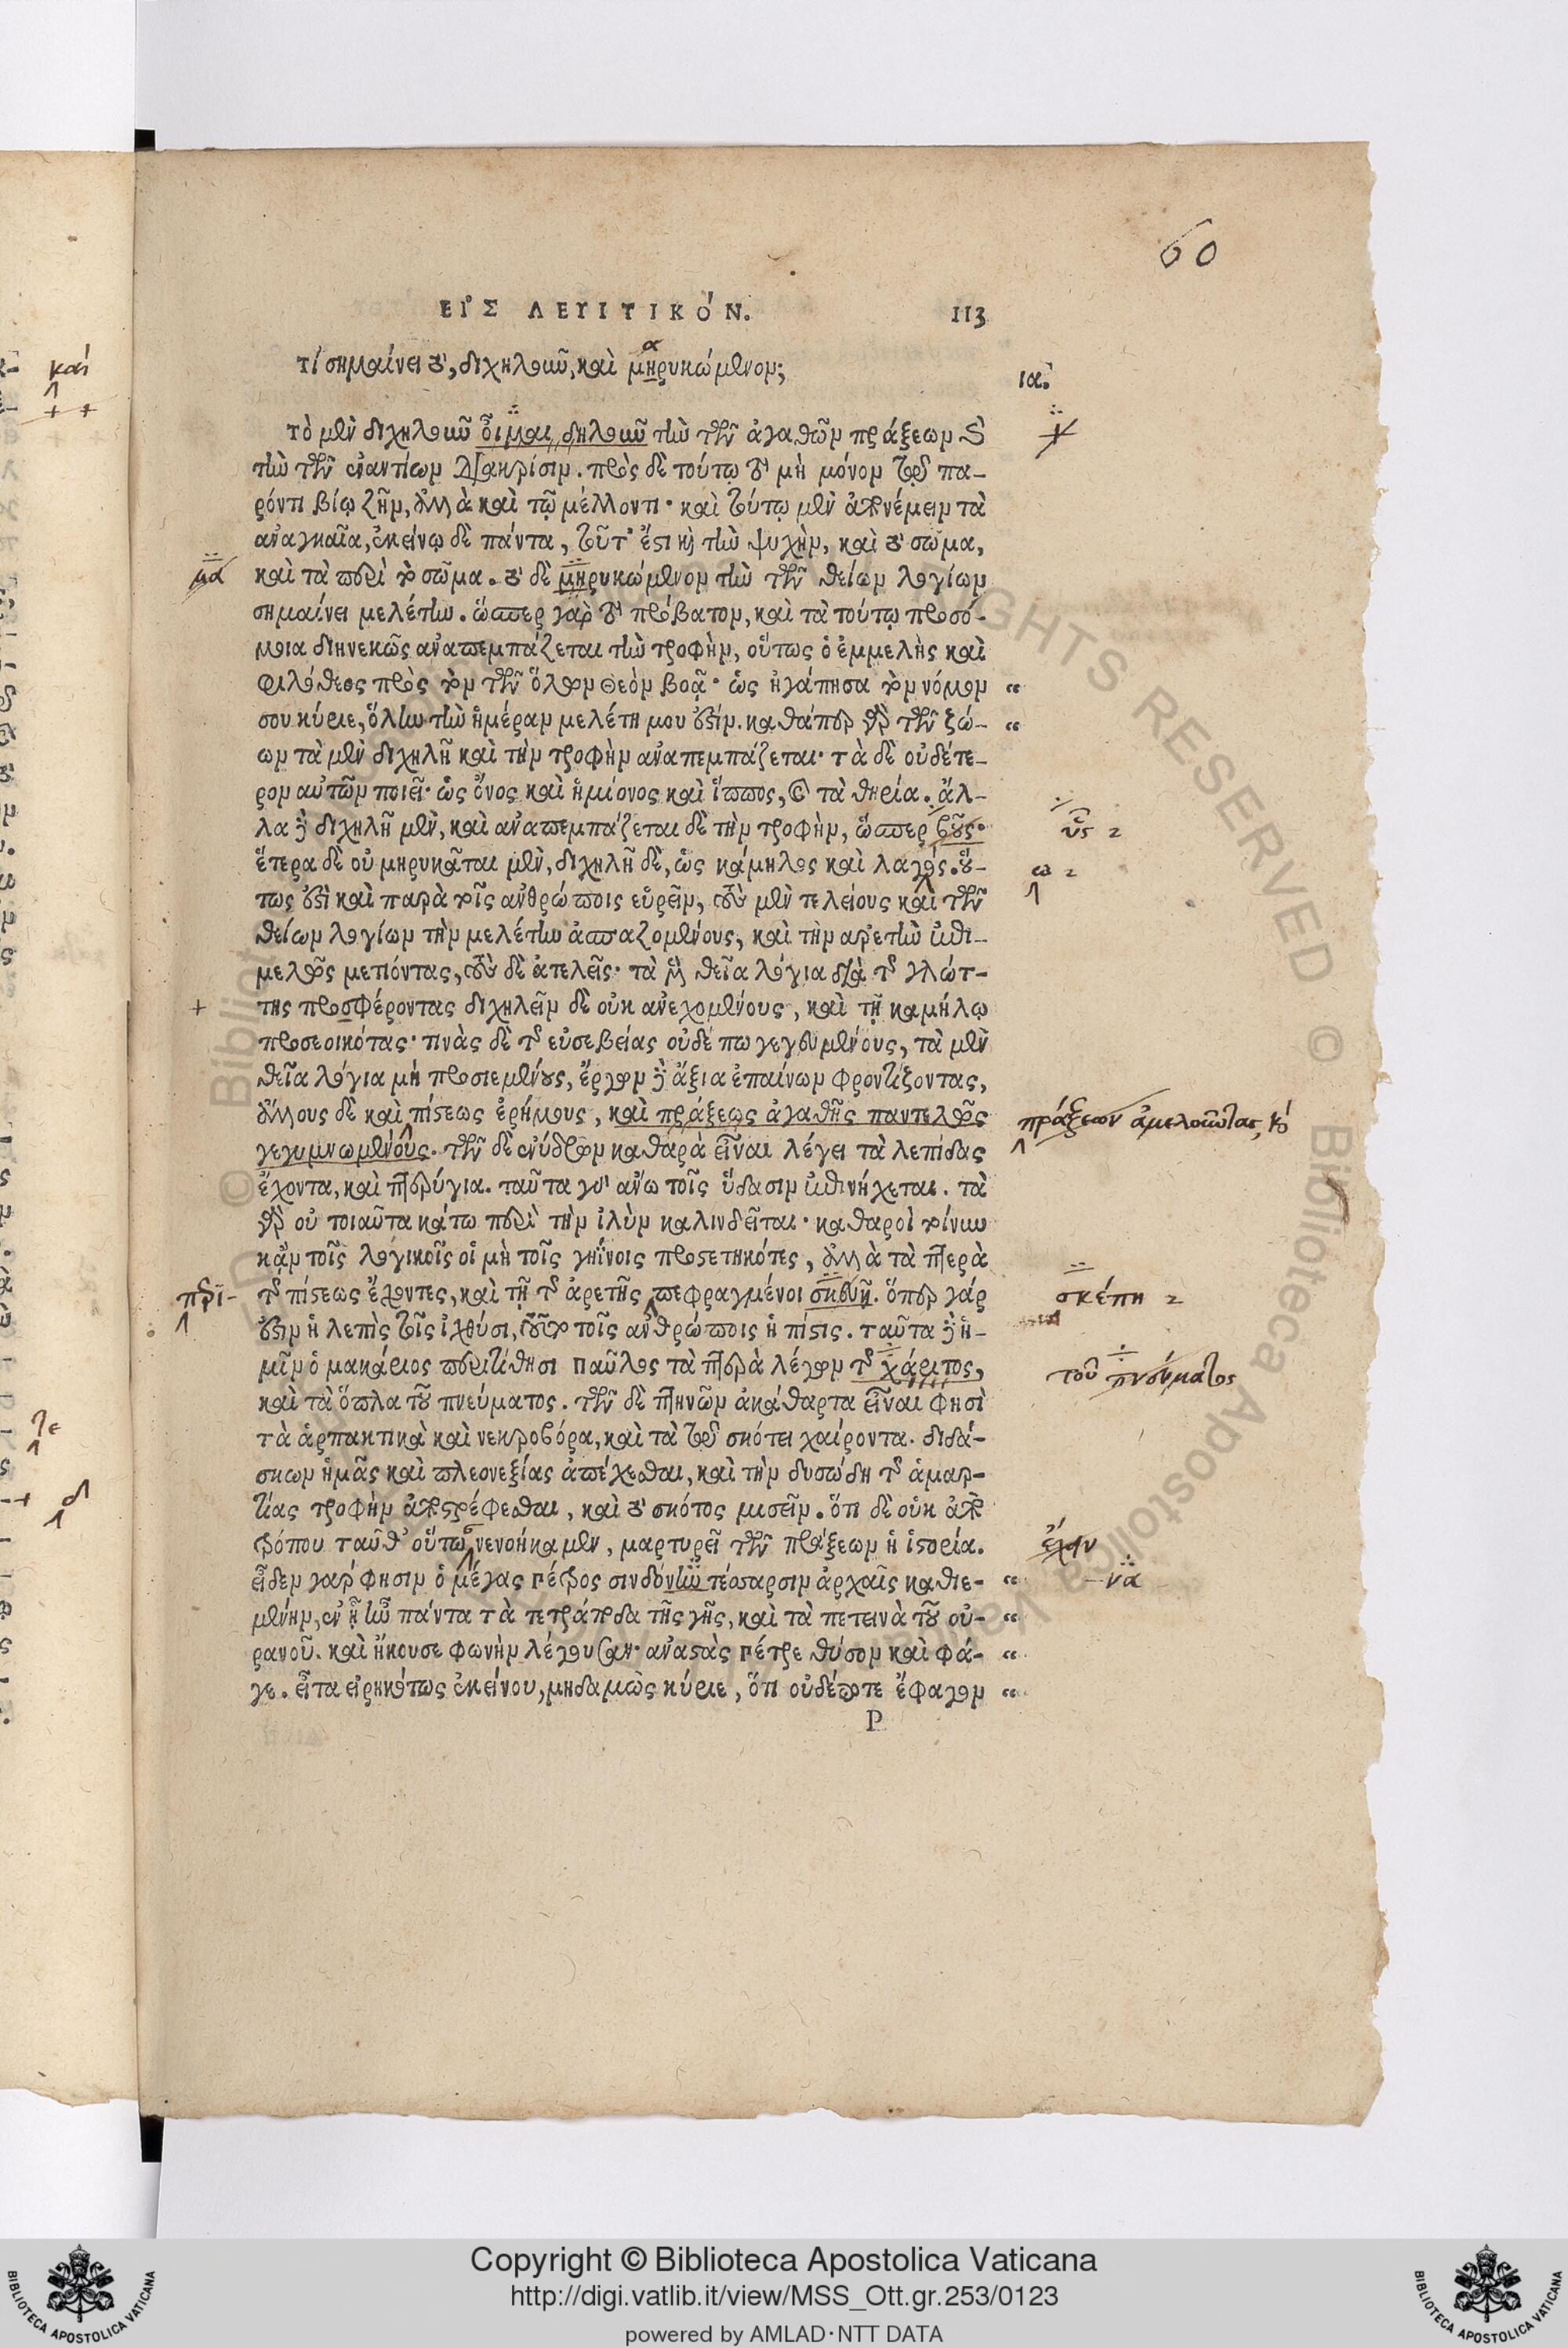 60
ΕΙ'Σ ΛΕΥΙΤΙΚΟ'Ν. 113
τί σημαίνει τὸ, διχηλοῦν, καὶ μηρυκώμενον;
ια.
τὸ μὲν διχηλοῦν οἶμαι δηλοῦν τὴν τῶν ἀγαθῶν πράξεων καὶ
τὴν τῶν ἐναντίων διακρίσιν. πρὸς δὲ τούτῳ τὸ μὴ μόνον τῷ πα-
ρόντι βίῳ ζῆν, ἀλλὰ καὶ τῷ μέλλοντι· καὶ τούτῳ μὲν ἀπονέμειν τὰ
ἀναγκαῖα, ἐκείνῳ δὲ πάντα, τοῦτ' ἔστι καὶ τὴν ψυχὴν, καὶ τὸ σῶμα,
καὶ τὰ περὶ τὸ σῶμα. τὸ δὲ μηρυκώμενον τὴν τῶν θείων λογίων
σημαίνει μελέτην. ὥσπερ γὰρ τὸ πρόβατον, καὶ τὰ τούτῳ προσό-
μοια διηνεκῶς ἀναπεμπάζεται τὴν τροφὴν, οὕτως ὁ ἐμμελὴς καὶ
φιλόθεος πρὸς τὸν τῶν ὅλων θεὸν βοᾷ· ὡς ἠγάπησα τὸν νόμον
σου κύριε, ὅλην τὴν ἡμέραν μελέτη μου ἐστίν. καθάπερ γὰρ τῶν ζώ-
ων τὰ μὲν διχηλῆ καὶ τὴν τροφὴν ἀναπεμπάζεται· τὰ δὲ οὐδέτε-
ρον αὐτῶν ποιεῖ· ὡς ὄνος καὶ ἡμίονος καὶ ἵππος, καὶ τὰ θηρία. ἄλ-
λα δὲ διχηλῆ μὲν, καὶ ἀναπεμπάζεται δὲ τὴν τροφὴν, ὥσπερ βοῦς·
ἕτερα δὲ οὐ μηρυκᾶται μὲν, διχηλῆ δὲ, ὡς κάμηλος καὶ λαγός. οὕ-
τως ἐστὶ καὶ παρὰ τοῖς ἀνθρώποις εὑρεῖν, τοὺς μὲν τελείους καὶ τῶν
θείων λογίων τὴν μελέτην ἀσπαζομένους, καὶ τὴν ἀρετὴν ἐπι-
μελῶς μετιόντας, τοὺς δὲ ἀτελεῖς· τὰ μὲν θεῖα λόγια διὰ τῆς γλώτ-
της προσφέροντας διχηλεῖν δὲ οὐκ ἀνεχομένους, καὶ τῇ καμήλῳ
προσεοικότας· τινὰς δὲ τῆς εὐσεβείας οὐδέ πω γεγευμένους, τὰ μὲν
θεῖα λόγια μὴ προσιεμένους, ἔργων δὲ ἄξια ἐπαίνων φροντίζοντας,
ἄλλους δὲ καὶ πίστεως ἐρήμους, καὶ πράξεως ἀγαθῆς παντελῶς
γεγυμνωμένους. τῶν δὲ ἐνύδρων καθαρὰ εἶναι λέγει τὰ λεπίδας
ἔχοντα, καὶ πτερύγια. ταῦτα γὰρ ἄνω τοῖς ὕδασιν ἐπινήχεται. τὰ
γὰρ οὐ τοιαῦτα κάτω περὶ τὴν ἰλὺν καλινδεῖται· καθαροὶ τοίνυν
κἀν τοῖς λογικοῖς οἱ μὴ τοῖς γηΐνοις προστετηκότες, ἀλλὰ τὰ πτερὰ
τῆς πίστεως ἔχοντες, καὶ τῇ τῆς ἀρετῆς πεφραγμένοι σκευῇ. ὅπερ γάρ
ἐστιν ἡ λεπὶς τοῖς ἰχθύσι, τοῦτο τοῖς ἀνθρώποις ἡ πίστις. ταῦτα δὲ ἡ-
μῖν ὁ μακάριος περιτίθησι παῦλος τὰ πτερὰ λέγων τῆς χάριτος,
καὶ τὰ ὅπλα τοῦ πνεύματος. τῶν δὲ πτηνῶν ἀκάθαρτα εἶναι φησὶ
τὰ ἁρπακτικὰ καὶ νεκροβόρα, καὶ τὰ τῷ σκότει χαίροντα. διδά-
σκων ἡμᾶς καὶ πλεονεξίας ἀπέχεσθαι, καὶ τὴν δυσώδη τῆς ἁμαρ-
τίας τροφὴν ἀποστρέφεσθαι, καὶ τὸ σκότος μισεῖν. ὅτι δὲ οὐκ ἀπὸ
τρόπου ταῦθ' οὕτω νενοήκαμεν, μαρτυρεῖ τῶν πράξεων ἡ ἱστορία.
εἶδεν γάρ φησιν ὁ μέγας πέτρος σινδόνην τέσσαρσιν ἀρχαῖς καθιε-
μένην, ἐν ᾗ ἦν πάντα τὰ τετράποδα τῆς γῆς, καὶ τὰ πετεινὰ τοῦ οὐ-
ρανοῦ. καὶ ἤκουσε φωνὴν λέγουσαν· ἀναστὰς πέτρε θύσον καὶ φά-
γε. εἶτα εἰρηκότως ἐκείνου, μηδαμῶς κύριε, ὅτι οὐδέποτε ἔφαγον
P
καὶ
μα
ὗς
ω
πράξεων ἀμελοῦντας, καὶ
περι-
σκέπη
τοῦ πνεύματος
τε
δ
να
Copyright © Biblioteca Apostolica Vaticana
http://digi.vatlib.it/view/MSS_Ott.gr.253/0123
powered by AMLAD·NTT DATA
BIBLIOTECA APOSTOLICA VATICANA
BIBLIOTECA APOSTOLICA VATICANA